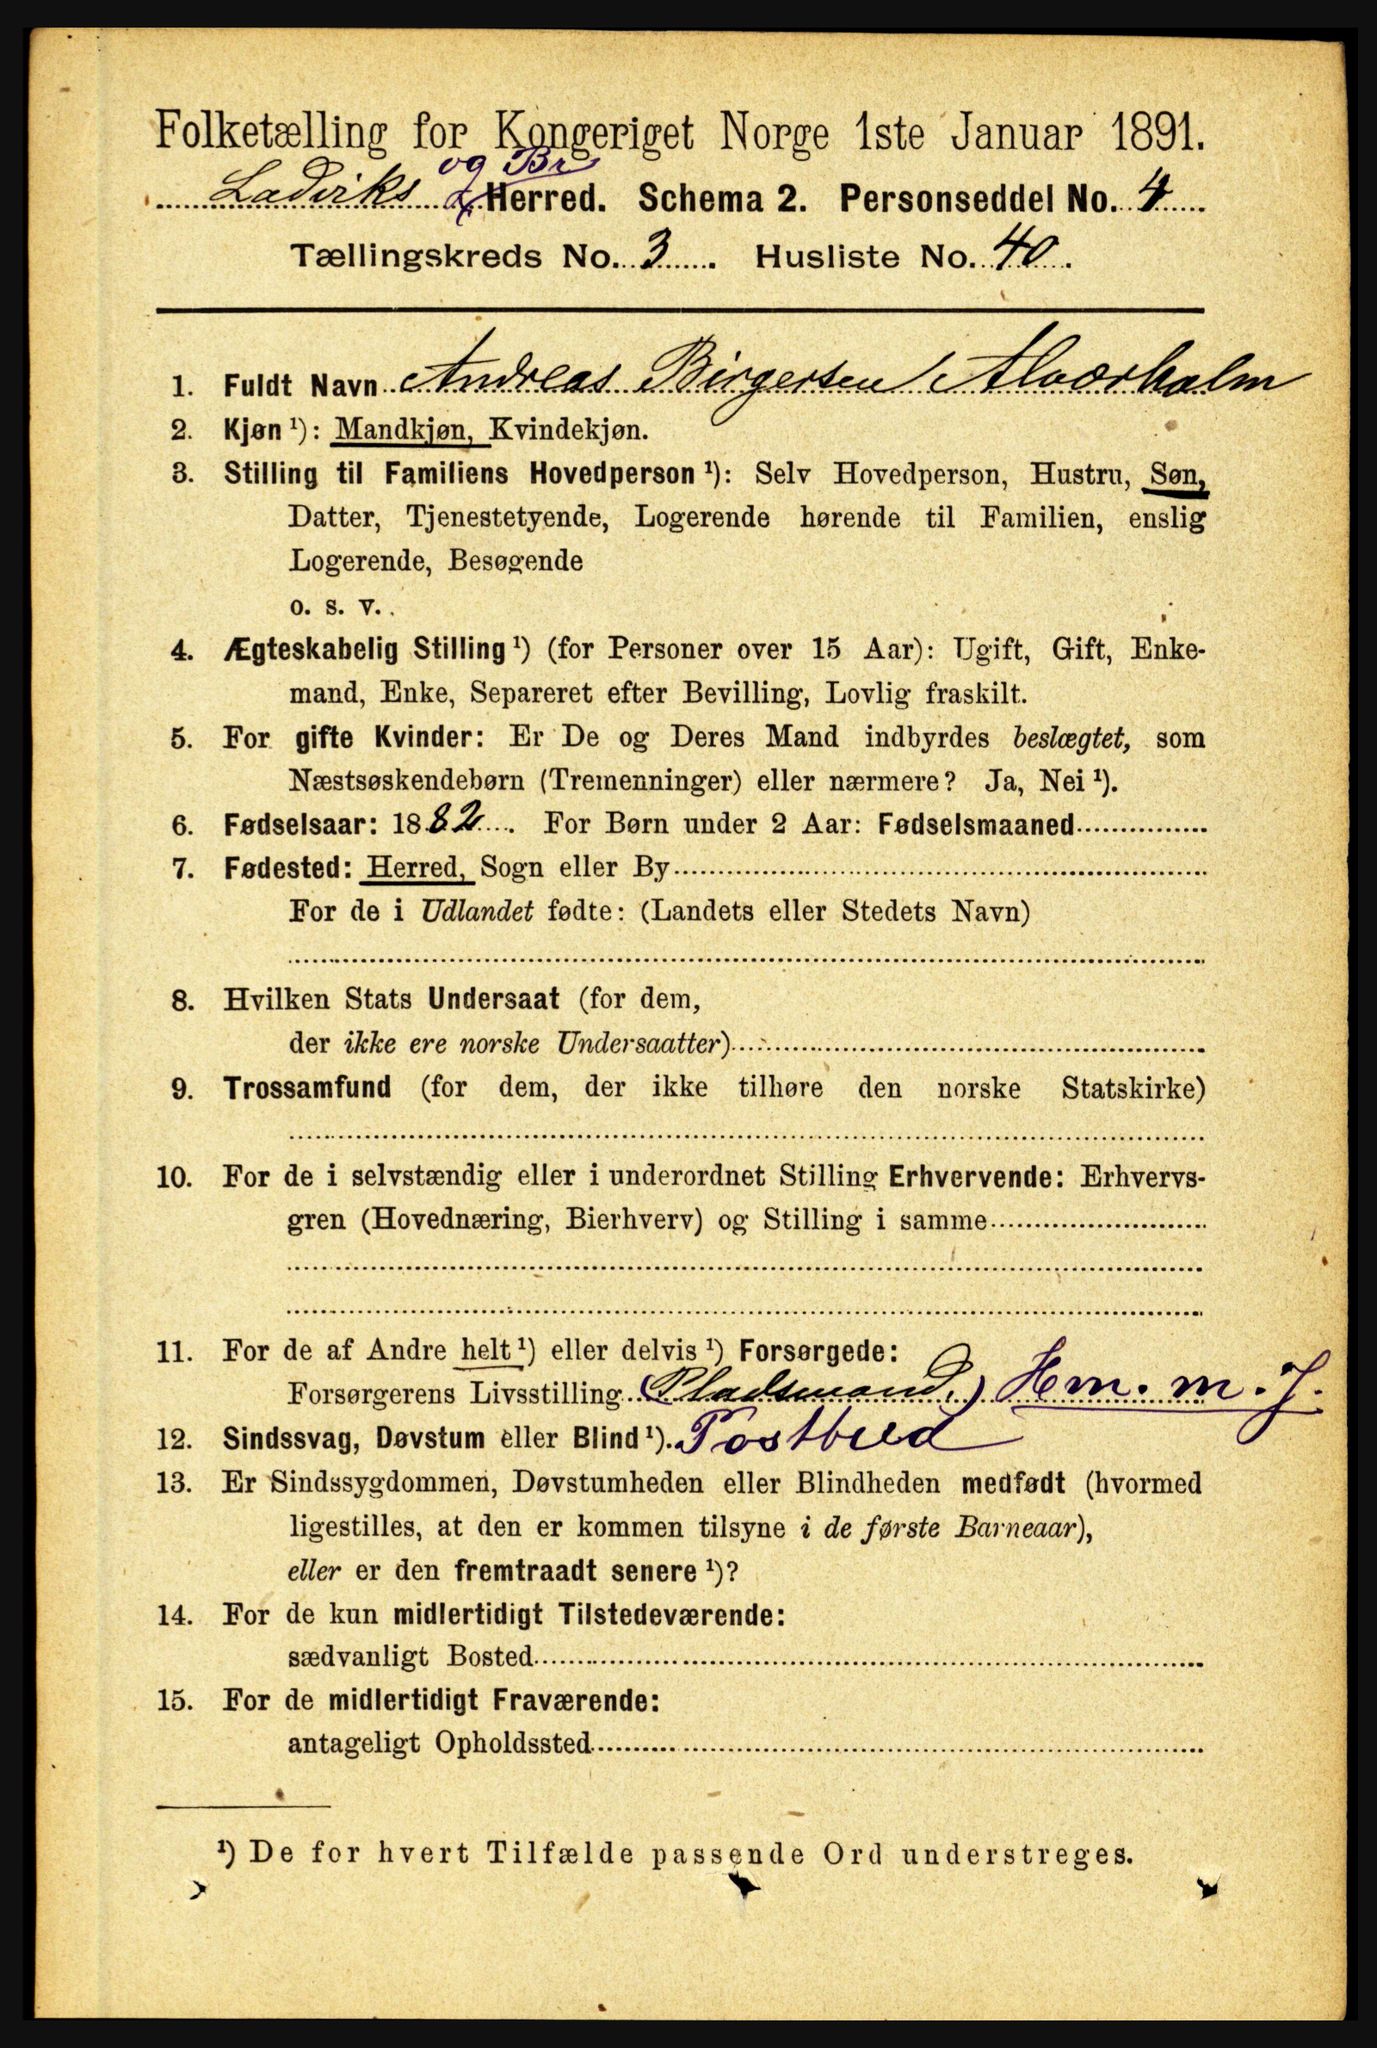 Folketælling for Kongeriget Norge 1ste Januar 1891.
og Br
Ladviks Herred. Schema 2. Personseddel No. 4
Tællingskreds No. 3. Husliste No. 40.
1. Fuldt Navn Andreas Birgersen Alværholm
2. Kjøn ¹): Mandkjøn, Kvindekjøn.
3. Stilling til Familiens Hovedperson ¹): Selv Hovedperson, Hustru, Søn,
Datter, Tjenestetyende, Logerende hørende til Familien, enslig
Logerende, Besøgende
o. s. v.
4. Ægteskabelig Stilling ¹) (for Personer over 15 Aar): Ugift, Gift, Enke-
mand, Enke, Separeret efter Bevilling, Lovlig fraskilt.
5. For gifte Kvinder: Er De og Deres Mand indbyrdes beslægtet, som
Næstsøskendebørn (Tremenninger) eller nærmere? Ja, Nei ¹).
6. Fødselsaar: 1882. For Børn under 2 Aar: Fødselsmaaned
7. Fødested: Herred, Sogn eller By
For de i Udlandet fødte: (Landets eller Stedets Navn)
8. Hvilken Stats Undersaat (for dem,
der ikke ere norske Undersaatter)
9. Trossamfund (for dem, der ikke tilhøre den norske Statskirke)
10. For de i selvstændig eller i underordnet Stilling Erhvervende: Erhvervs-
gren (Hovednæring, Bierhverv) og Stilling i samme
11. For de af Andre helt ¹) eller delvis ¹) Forsørgede:
Forsørgerens Livsstilling (Pladsmand.) Hm. m. J.
12. Sindssvag, Døvstum eller Blind ¹). Postbud
13. Er Sindssygdommen, Døvstumheden eller Blindheden medfødt (hvormed
ligestilles, at den er kommen tilsyne i de første Barneaar),
eller er den fremtraadt senere ¹)?
14. For de kun midlertidigt Tilstedeværende:
sædvanligt Bosted
15. For de midlertidigt Fraværende:
antageligt Opholdssted
¹) De for hvert Tilfælde passende Ord understreges.